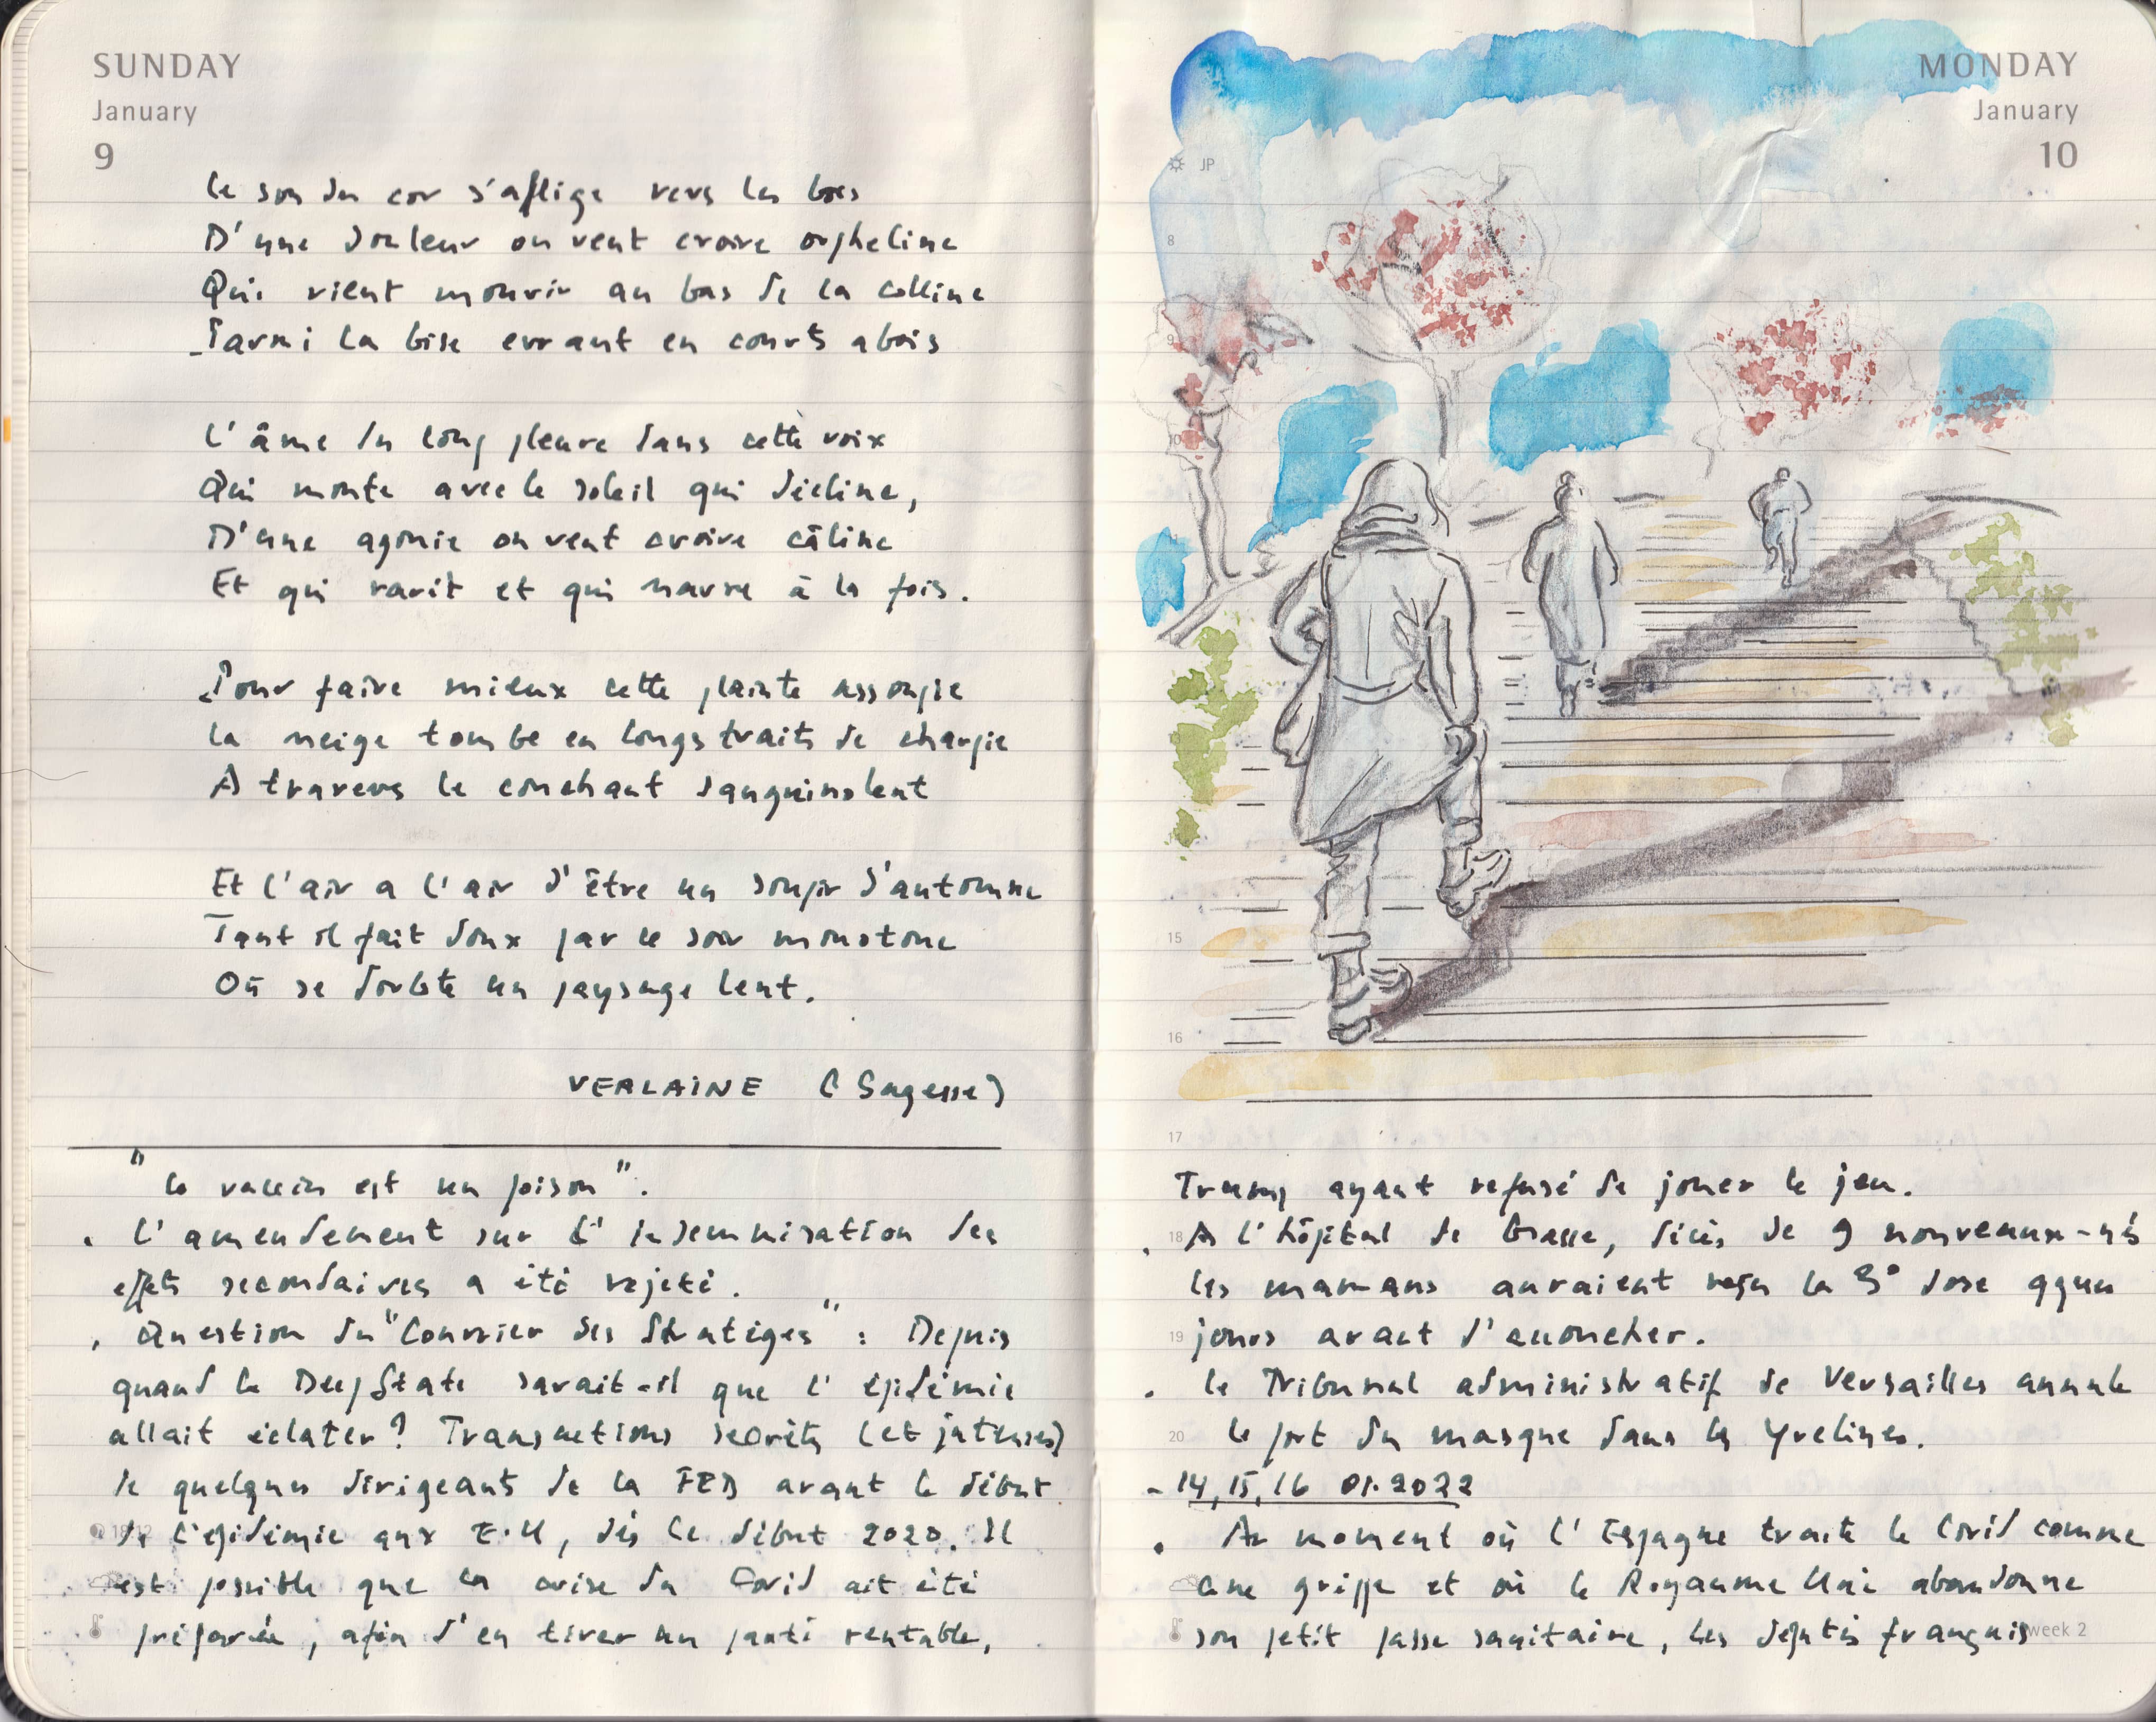 SUNDAY
January
9
Le son du cor s'aflige vers les bois
D'une douleur on veut croire orpheline
Qui vient mourir au bas de la colline
Parmi la bise errant en courts abois
L'âme du loup pleure dans cette voix
Qui monte avec le soleil qui décline,
D'une agonie on veut croire câline
Et qui ravit et qui navre à la fois.
Pour faire mieux cette plainte assoupie
La neige tombe en longs traits de charpie
A travers le couchant sanguinolent
Et l'air a l'air d'être un soupir d'automne
Tant il fait doux par ce soir monotone
Où se dorlote un paysage lent.
VERLAINE (Sagesse)
"Le vaccin est un poison".
. L'amendement sur l'indemnisation des
effets secondaires a été rejeté.
. Question du "Courrier des Stratèges" : Depuis
quand le DeepState savait-il que l'épidémie
allait éclater? Transactions secrètes (et juteuses)
de quelques dirigeants de la FED avant le début
de l'épidémie aux E.U, dès le début 2020. Il
est possible que la crise du Covid ait été
préparée, afin d'en tirer un parti rentable,
MONDAY
January
10
JP
8
9
10
15
16
17
Trump ayant refusé de jouer le jeu.
18
. A l'hôpital de Grasse, décès de 9 nouveaux-nés
les mamans auraient reçu la 3° dose qques
19
jours avant d'accoucher.
. Le Tribunal administratif de Versailles annule
20
le port du masque dans les Yvelines.
- 14, 15, 16 01.2022
. Au moment où l'Espagne traite le Covid comme
une grippe et où le Royaume Uni abandonne
son petit passe sanitaire, les députés français
week 2